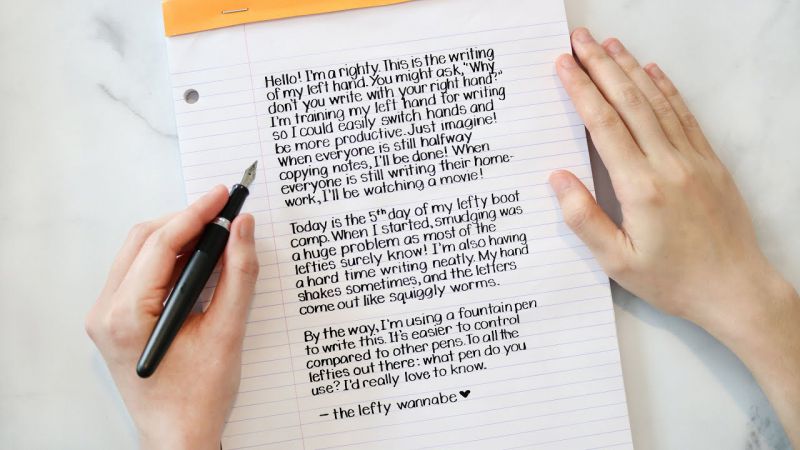 Hello! I'm a righty. This is the writing
of my left hand. You might ask, "Why
don't you write with your right hand?"
I'm training my left hand for writing
so I could easily switch hands and
be more productive. Just imagine!
When everyone is still halfway
copying notes, I'll be done! When
everyone is still writing their home-
work, I'll be watching a movie!
Today is the 5th day of my lefty boot
camp. When I started, smudging was
a huge problem as most of the
lefties surely know! I'm also having
a hard time writing neatly. My hand
shakes sometimes, and the letters
come out like squiggly worms.
By the way, I'm using a fountain pen
to write this. It's easier to control
compared to other pens. To all the
lefties out there: what pen do you
use? I'd really love to know.
– the lefty wannabe ♥